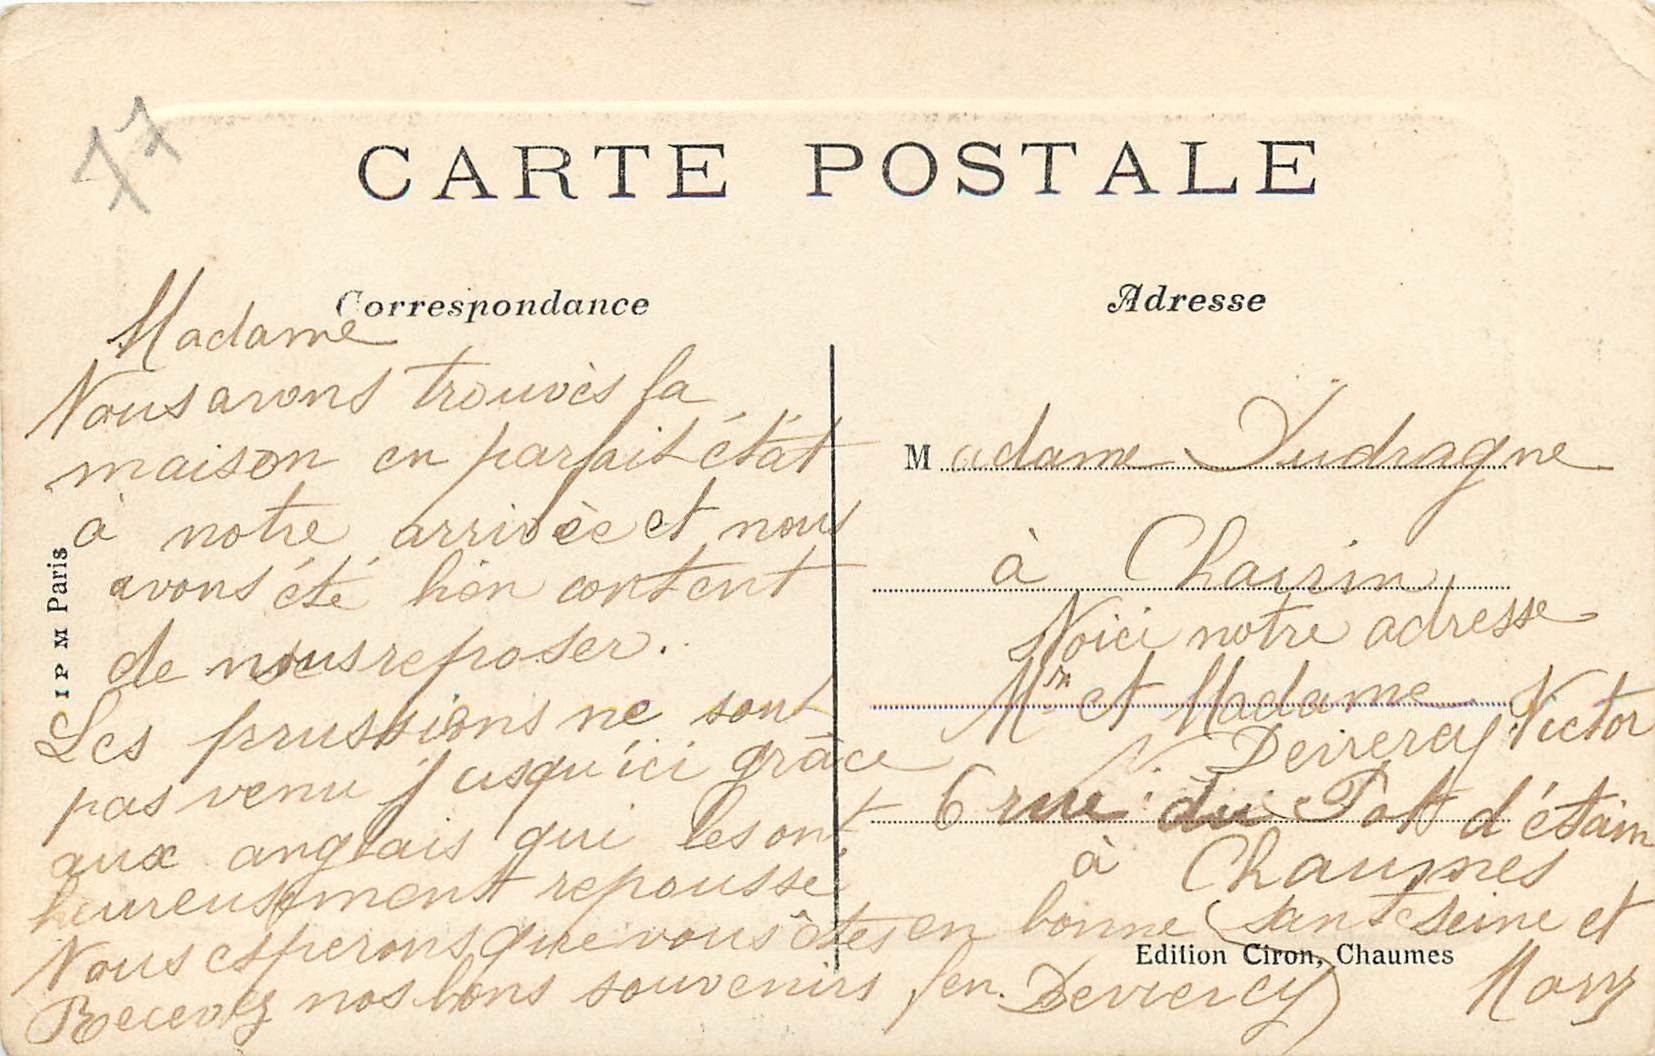 77
CARTE POSTALE
Correspondance
Madame
Nous avons trouvès la
maison en parfait état
à notre arrivèe et nous
avons été bien content
de nous reposer.
Les prussiens ne sont
pas venu jusqu'ici grâce
aux anglais qui les ont
heureusement repousse
Nous esperons que vous êtes en bonne sante
Recevez nos bons souvenirs
I P M Paris
Adresse
Madame
à
Voici notre adresse
Mr et Madame Victor
6 rue du Pot d'étain
à Chaumes
Seine et
Marn
Edition Ciron, Chaumes